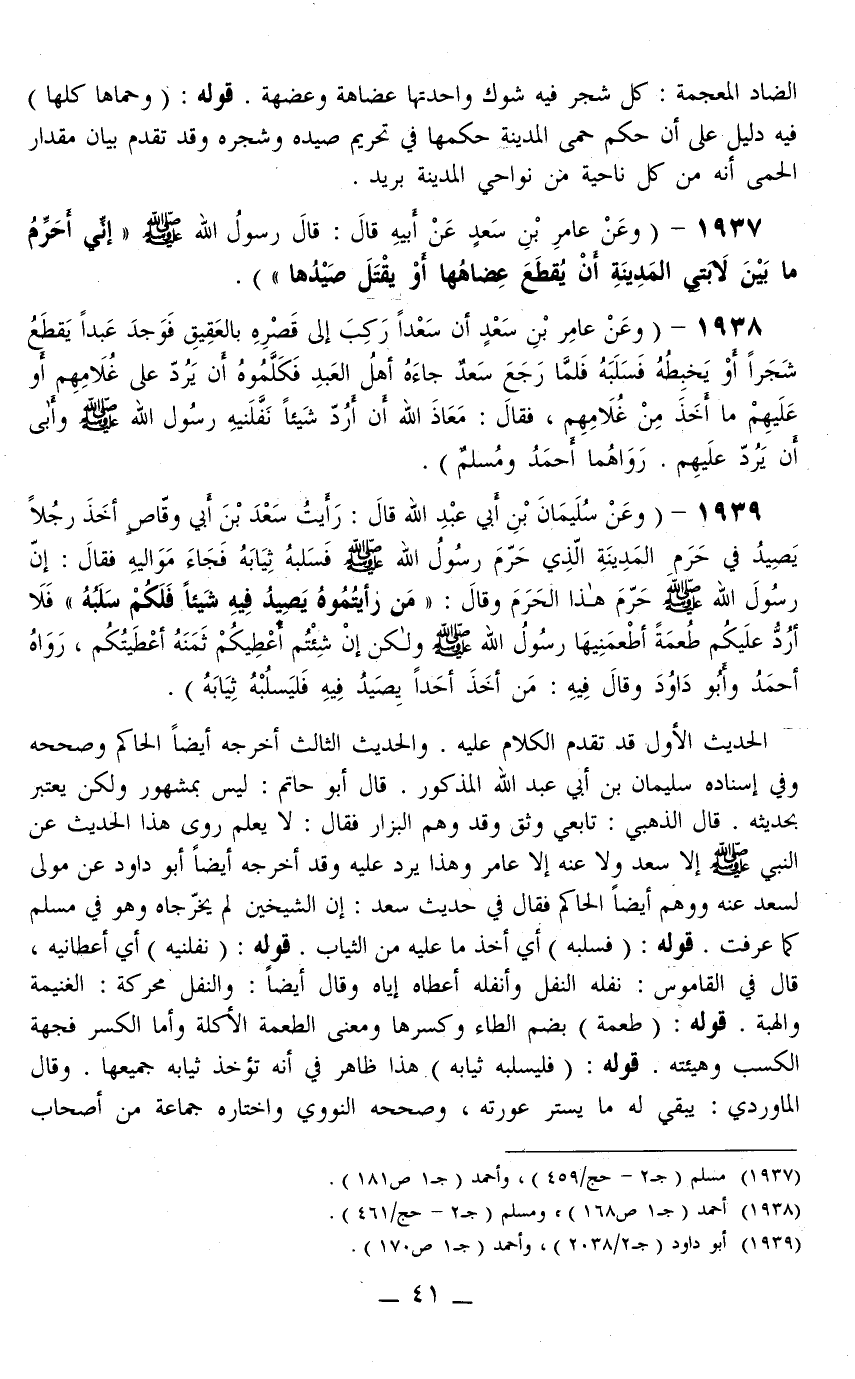 الضاد المعجمة : كل شجر فيه شوك واحدتها عضاهة وعضهة . قوله : ( وحماها كلها )
فيه دليل على أن حكم حمى المدينة حكمها في تحريم صيده وشجره وقد تقدم بيان مقدار
الحمى أنه من كل ناحية من نواحي المدينة بريد .
١٩٣٧ – ( وعَنْ عامرِ بْنِ سَعدٍ عَنْ أَبيهِ قالَ : قالَ رسولُ الله ﷺ « إنّي أُحَرِّمُ
ما بَيْنَ لَابَتي المَدِينَةِ أَنْ يُقطَعَ عِضاهُها أَوْ يقْتَلَ صَيْدُها » ) .
١٩٣٨ – ( وعَنْ عامِر بْنِ سَعْدٍ أن سَعْداً رَكِبَ إلى قَصْرِهِ بالعَقِيقِ فَوَجدَ عَبداً يَقطَعُ
شَجَراً أَوْ يَخبِطُهُ فَسَلَبَهُ فَلمَّا رَجَعَ سَعدٌ جاءَهُ أهلُ العَبدِ فَكَلَّمُوهُ أَن يَرُدّ على غُلَامِهِم أَو
عَلَيهِمْ ما أَخَذَ مِنْ غُلَامِهِم ، فقالَ : مَعَاذَ الله أَن أَرُدّ شَيئاً نَفَّلَنيهِ رسُول الله ﷺ وأَبى
أَن يَرُدّ علَيهِم . رَوَاهُما أَحمَدُ ومُسلمٌ ) .
١٩٣٩ – ( وعَنْ سُلَيمَانَ بْنِ أَبي عبْدِ الله قالَ : رَأَيتُ سَعْدَ بْنَ أَبي وقّاصٍ أخَذَ رجُلاً
يَصِيدُ في حَرَمِ المَدِينَةِ الّذِي حَرّمَ رسُولُ الله ﷺ فَسَلبهُ ثِيَابَهُ فَجَاءَ مَوَاليهِ فقالَ : إنّ
رسُولَ الله ﷺ حَرّمَ هٰذا الحَرَمَ وقالَ : « مَن رَأيتُمُوهُ يَصِيدُ فِيهِ شَيئاً فَلَكُمْ سَلَبُهُ » فَلَا
أرُدُّ علَيكُم طُعمَةً أطْعمَنِيهَا رسُولُ الله ﷺ ولٰكن إنْ شِئْتُم أُعْطِيكُمْ ثَمَنَهُ أعْطَيتُكُم ، رَوَاهُ
أحمَدُ وأَبُو دَاوُدَ وقالَ فِيهِ : مَن أخَذَ أحَداً يصَيدُ فِيهِ فَليَسلُبْهُ ثِيَابَهُ ) .
الحديث الأول قد تقدم الكلام عليه . والحديث الثالث أخرجه أيضاً الحاكم وصححه
وفي إسناده سليمان بن أبي عبد الله المذكور . قال أبو حاتم : ليس بمشهور ولكن يعتبر
بحديثه . قال الذهبي : تابعي وثق وقد وهم البزار فقال : لا يعلم روى هذا الحديث عن
النبي ﷺ إلا سعد ولا عنه إلا عامر وهذا يرد عليه وقد أخرجه أيضاً أبو داود عن مولى
لسعد عنه ووهم أيضاً الحاكم فقال في حديث سعد : إن الشيخين لم يخرّجاه وهو في مسلم
كما عرفت . قوله : ( فسلبه ) أي أخذ ما عليه من الثياب . قوله : ( نفلنيه ) أي أعطانيه ،
قال في القاموس : نفله النفل وأنفله أعطاه إياه وقال أيضاً : والنفل محركة : الغنيمة
والهبة . قوله : ( طعمة ) بضم الطاء وكسرها ومعنى الطعمة الأكلة وأما الكسر فجهة
الكسب وهيئته . قوله : ( فليسلبه ثيابه ) هذا ظاهر في أنه تؤخذ ثيابه جميعها . وقال
الماوردي : يبقي له ما يستر عورته ، وصححه النووي واختاره جماعة من أصحاب
(١٩٣٧) مسلم ( جـ٢ – حج/٤٥٩ ) ، وأحمد ( جـ١ ص١٨١ ) .
(١٩٣٨) أحمد ( جـ١ ص١٦٨ ) ، ومسلم ( جـ٢ – حج/٤٦١ ) .
(١٩٣٩) أبو داود ( جـ٢/٢٠٣٨ ) ، وأحمد ( جـ١ ص١٧٠ ) .
– ٤١ –